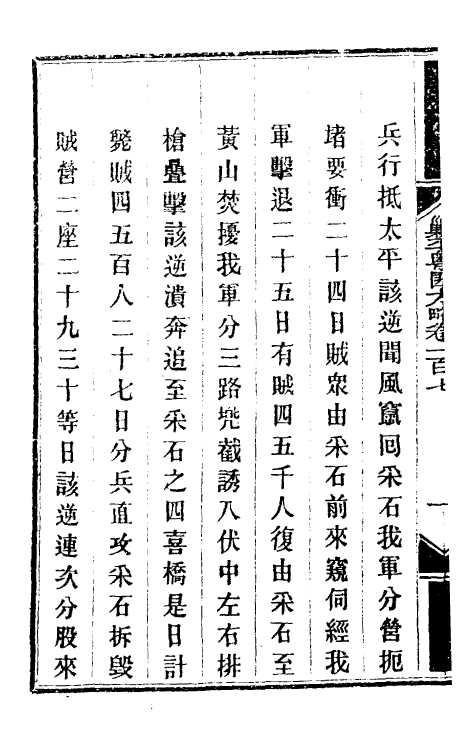 兵行抵太平該逆聞風竄回采石我軍分營扼
堵要衝二十四日賊衆由采石前來窺伺經我
軍擊退二十五日有賊四五千人復由采石至
黃山焚擾我軍分三路兜截誘入伏中左右排
槍疊擊該逆潰奔追至采石之四喜橋是日計
斃賊四五百人二十七日分兵直攻采石拆毀
賊營二座二十九三十等日該逆連次分股來
卷一百七